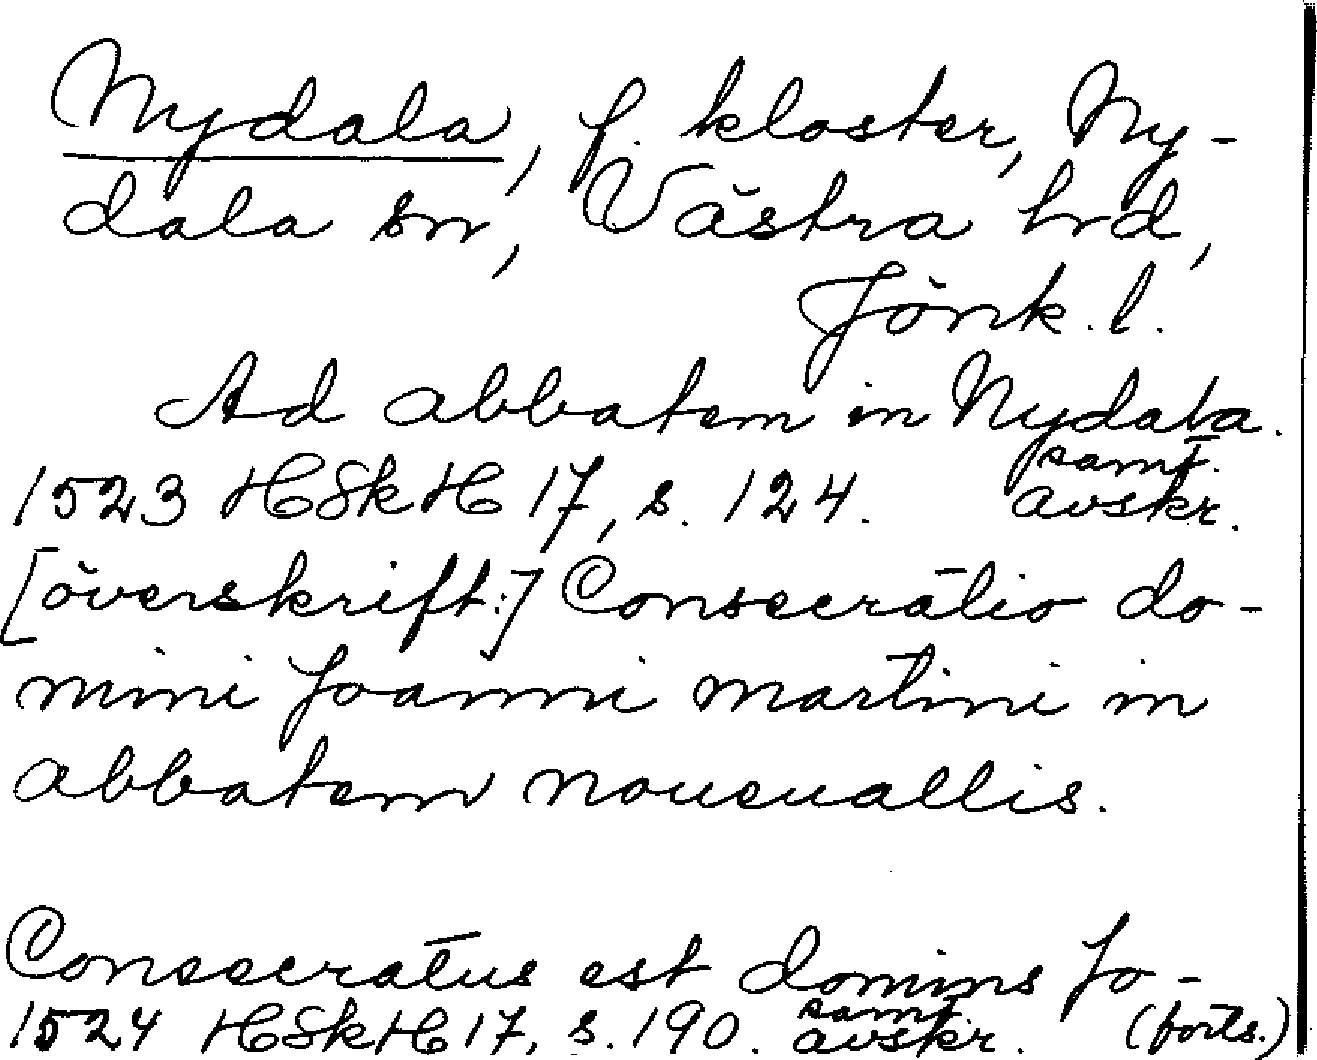 Nydala, f. kloster, Ny-
dala sn, Västra hrd,
Jönk. l.
Ad abbatem in Nydala.
1523 HSkH 17, s. 124. samt. avskr.
[överskrift:] Consecratio do-
mini Joanni martini in
abbatem noueuallis.
Consecratus est dominus Jo-
1524 HSkH 17, s. 190. samt. avskr. (forts.)